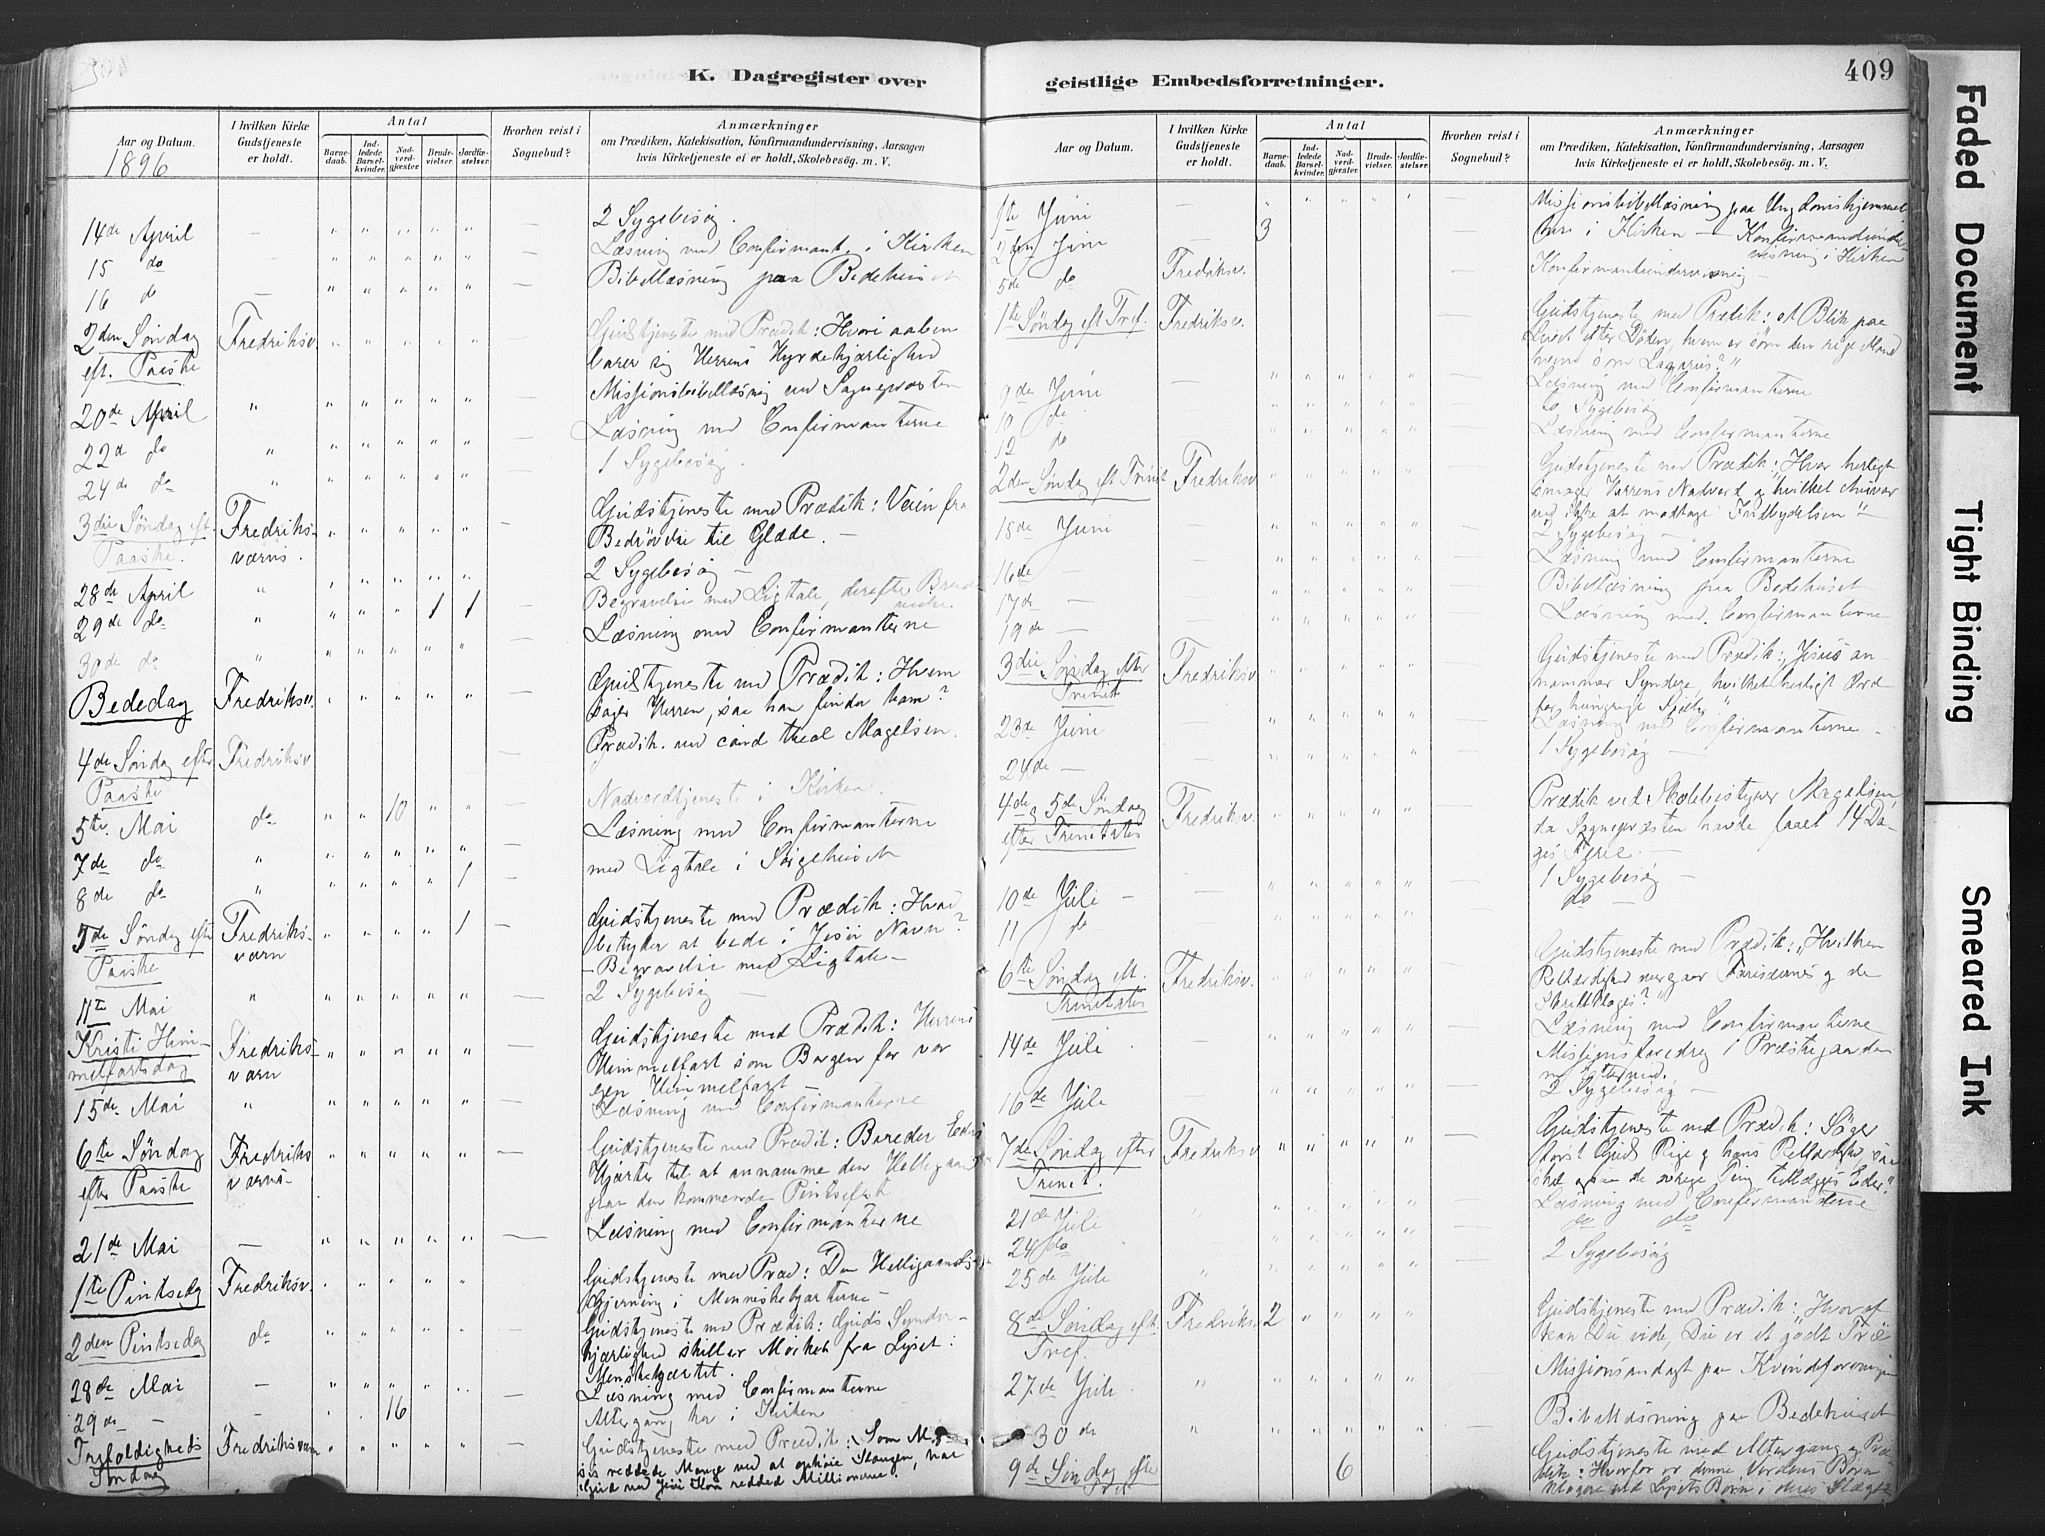 K. Dagregister over
geistlige Embedsforretninger.
409
Faded Document
Tight Binding
Smeared Ink
Aar og Datum.
1896
I hvilken Kirke Gudstjeneste er holdt.
Antal
Barnedaab.
Indledede Barselkvinder.
Nadverdgjæster
Brudevielser
Jordfæstelser.
Hvorhen reist i Sognebud?
Anmærkninger
om Prædiken, Katekisation, Konfirmandundervisning, Aarsagen
hvis Kirketjeneste ei er holdt, Skolebesög. m. V.
14de April — 2 Sygebesøg.
15 do — Læsning med Confirmant. i Kirken
16 do — Bibellæsning paa Bedehuset
2den Søndag Fredriksv. Gudstjeneste med Prædik: Hvori aaben
eft. Paaske barer sig Herrens Hyrdehjærlighed
20de April Missionsbibellæsnig ved Sognepræsten
22d do Læsning med Confirmanterne
24de do 1 Sygebesøg.
3die Søndag eft. Fredriks- Gudstjeneste med Prædik: Veien fra
Paaske. værns. Bedrøvelse til Glæde. —
28de April 2 Sygebesøg —
29de do 1 1 Begravelse med Ligtale, derefter Brude
vielse.
30de do Læsning med Confirmanterne
Bededag Fredriksv. Gudstjeneste med Prædik: Hvem
søger Herren, saa han finder ham?
4de Søndag efter Fredriksv Prædik. ved cand theol Magelsen.
Paaske
5te Mai do 10 Nadverdtjeneste i Kirken.
7de do Læsning med Confirmanterne
8de do 1 med Ligtale i Sørgehuset
5de Søndag efter Fredriks- 1 Gudstjeneste med Prædik: Hvad
Paaske værn betyder at bede i Jesu Navn?
— Begravelse med Ligtale —
11te Mai 2 Sygebesøg —
Kristi Him- Fredriks- Gudstjeneste med Prædik: Herrens
melfartsdag værn Himmelfart som Borgen for vor
egen Himmelfart —
15de Mai Læsning med Confirmanterne
6te Søndag Fredriks Gudstjeneste med Prædik: Bereder Eders
efter Paaske værns Hjærter til at annamme den Helligaand
paa den kommende Pintsefest
21de Mai — Læsning med Confirmanterne
1te Pintsedag Fredriksv. Gudstjeneste med Præd: Den Helligaands
Gjerning i Menneskehjærterne —
2den Pintsedag do Gudstjeneste med Prædik: Guds Synder-
hjærlighed skiller Mørket fra Lyset i
Menskehjærtet.
28de Mai — Læsning med Confirmanterne
29de — 16 Altergang her i Kirken
Trefoldigheds Fredriksværn Gudstjeneste med Prædik: Som Mo-
Søndag ses reddede Mange ved at ophøie Slangen, har
Gud ved Jesu Kors redded Millionene.
Aar og Datum.
I hvilken Kirke Gudstjeneste er holdt.
Antal
Barnedaab.
Indledede Barselkvinder.
Nadverdgjæster
Brudevielser.
Jordfæstelser.
Hvorhen reist i Sognebud?
Anmærkninger
om Prædiken, Katekisation, Konfirmandundervisning, Aarsagen
hvis Kirketjeneste ei er holdt, Skolebesög. m. V.
1te Juni — Missionsbibellæsning paa Ungdomshjemmet
2den Juni — 3 i Kirken — Konfirmandunder-
visning i Kirken
5de do Fredriksv. Konfirmandundervisning —
1te Søndag eft Tref. Fredriksv. Gudstjeneste med Prædik: et Blik paa
Livet efter Døden, hvem er som den rige Mand
hvem som Lazarus?"
9de Juni — Læsning med Confirmanterne
10 do to Sygebesøg
12 do Læsning med Confirmanterne
2den Søndag eft Trinit Fredriksv Gudstjeneste med Prædik: "Hvor herligt
smager Herrens Nadverd og hvilket Ansvar
ved ikke at modtage Indbydelsen"
15de Juni 2 Sygebesøg —
16de — Læsning med Confirmanterne
17de — Bibellæsning paa Bedehuset
19de — Læsning med Confirmanterne
3die Søndag efter Fredriksv Gudstjeneste med Prædik: "Jesus an-
Trinit nammer Syndere, hvilket herligt Ord
for hungrige Sjæle"
23de Juni Læsning med Confirmanterne —
24de — 1 Sygebesøg —
4de og 5de Søndag Fredriksv. Prædik ved Skolebestyrer Magelsen,
efter Trinitatis da Sognepræsten havde faaet 14 Da-
ges Ferie. —
10de Juli — 1 Sygebesøg —
11 do do —
6te Søndag eft. Fredriksv. Gudstjeneste med Prædik: "Hvilken
Trinitatis Retfærdighed overgaar Farisæernes og de
Skriftkloges?"
14de Juli Læsning med Confirmanterne
Missionsforedrag i Præstegaarden
16de Juli 2 Sygebesøg —
7de Søndag efter Fredriksv Gudstjeneste med Prædik: Søger
Trinit. først Guds Rige og hans Retfærdighed saa
skal ogsaa de øvrige Ting tillægges Eder".
21de Juli Læsning med Confirmanterne
24 do do do
25de Juli 2 Sygebesøg
8de Søndag eft. Fredriksv 2 Gudstjeneste med Prædik: "Hvoraf
Tref. kan Du vide, Du er et godt Træ
27de Juli Missionsandagt paa Kvindeforeningen
30de Bibellæsning paa Bedehuset
9de Søndag efter 6 Gudstjeneste med Altergang og Præ
Tref dik: Hvorfor er denne Verdens Børn
klogere end Lysets Børn i deres Slægt